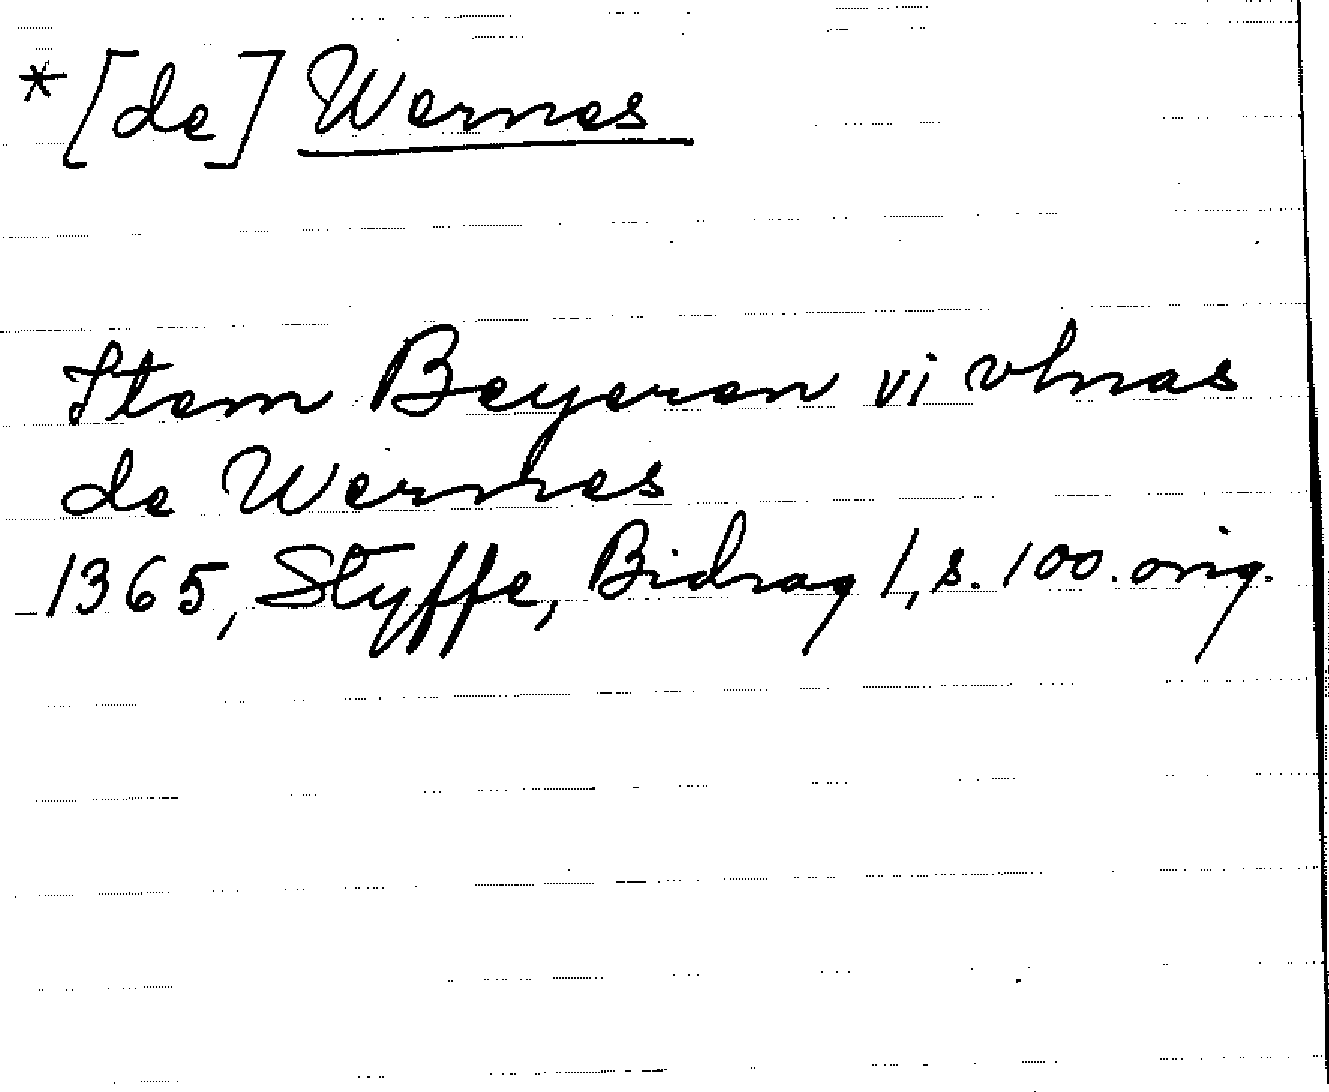 *[de] Wernes
Item Beyeren vi vlnas
de Wernes
1365, Styffe, Bidrag 1, s. 100. orig.